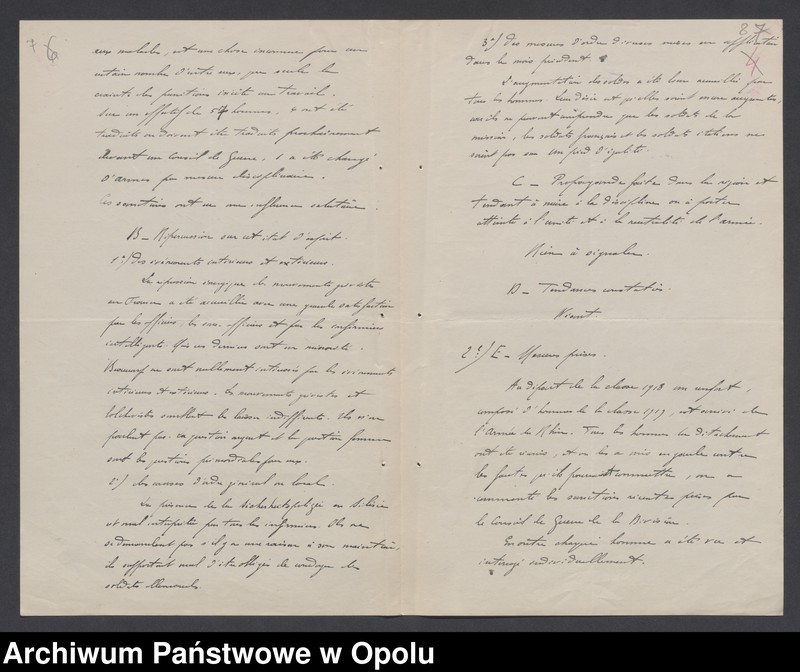 7 6
aux malades, est une chose inconnue pour un
certain nombre d'entre eux, que seule la
crainte des punitions incite au travail.
Sur un effectif de 57 hommes, 4 ont été
traduits ou doivent être traduits prochainement
devant un Conseil de Guerre, 1 a été changé
d'armes par mesure disciplinaire.
Les sanctions ont eu une influence salutaire.
B - Répercussion sur cet état d'esprit.
1°/ des événements intérieurs et extérieurs.
La répression énergique des mouvements grévistes
en France a été accueillie avec une grande satisfaction
par les officiers, les sous-officiers et par les infirmiers
intelligents. Mais ces derniers sont en minorité.
Beaucoup ne sont nullement intéressés par les événements
intérieurs et extérieurs. Les mouvements grévistes et
bolchevistes semblent les laisser indifférents. Ils n'en
parlent pas. La question argent et la question femme
sont les questions primordiales pour eux.
2°/ des causes d'ordre général ou local.
La présence de la Sicherheitspolizei en Silésie
est mal interprétée par tous les infirmiers. Ils se
demandent pas s'il y a une raison à son maintien,
ils supportent mal d'être obligés de coudoyer des
soldats allemands.
8 7
4
3°/ des mesures d'ordre diverses mises en application
dans le mois précédent
L'augmentation des soldes a été bien accueillie par
tous les hommes. Leur désir est qu'elles soient encore augmentées,
car ils ne peuvent comprendre que les soldats de la
mission, les soldats français et les soldats italiens ne
soient pas sur un pied d'égalité.
C - Propagande faite dans la région et
tendant à nuire à la discipline ou à porter
atteinte à l'unité et à la neutralité de l'armée.
Rien à signaler.
D - Tendances constatées.
Néant.
2°/ E - Mesures prises.
Au départ de la classe 1918 un renfort,
composé d'hommes de la classe 1919, est arrivé de
l'Armée du Rhin. Tous les hommes du détachement
ont été réunis, et on les a mis en garde contre
les fautes qu'ils pourraient commettre, on a
commenté les sanctions récentes prises par
le Conseil de Guerre de la Division.
En outre chaque homme a été vu et
interrogé individuellement.
Archiwum Państwowe w Opolu